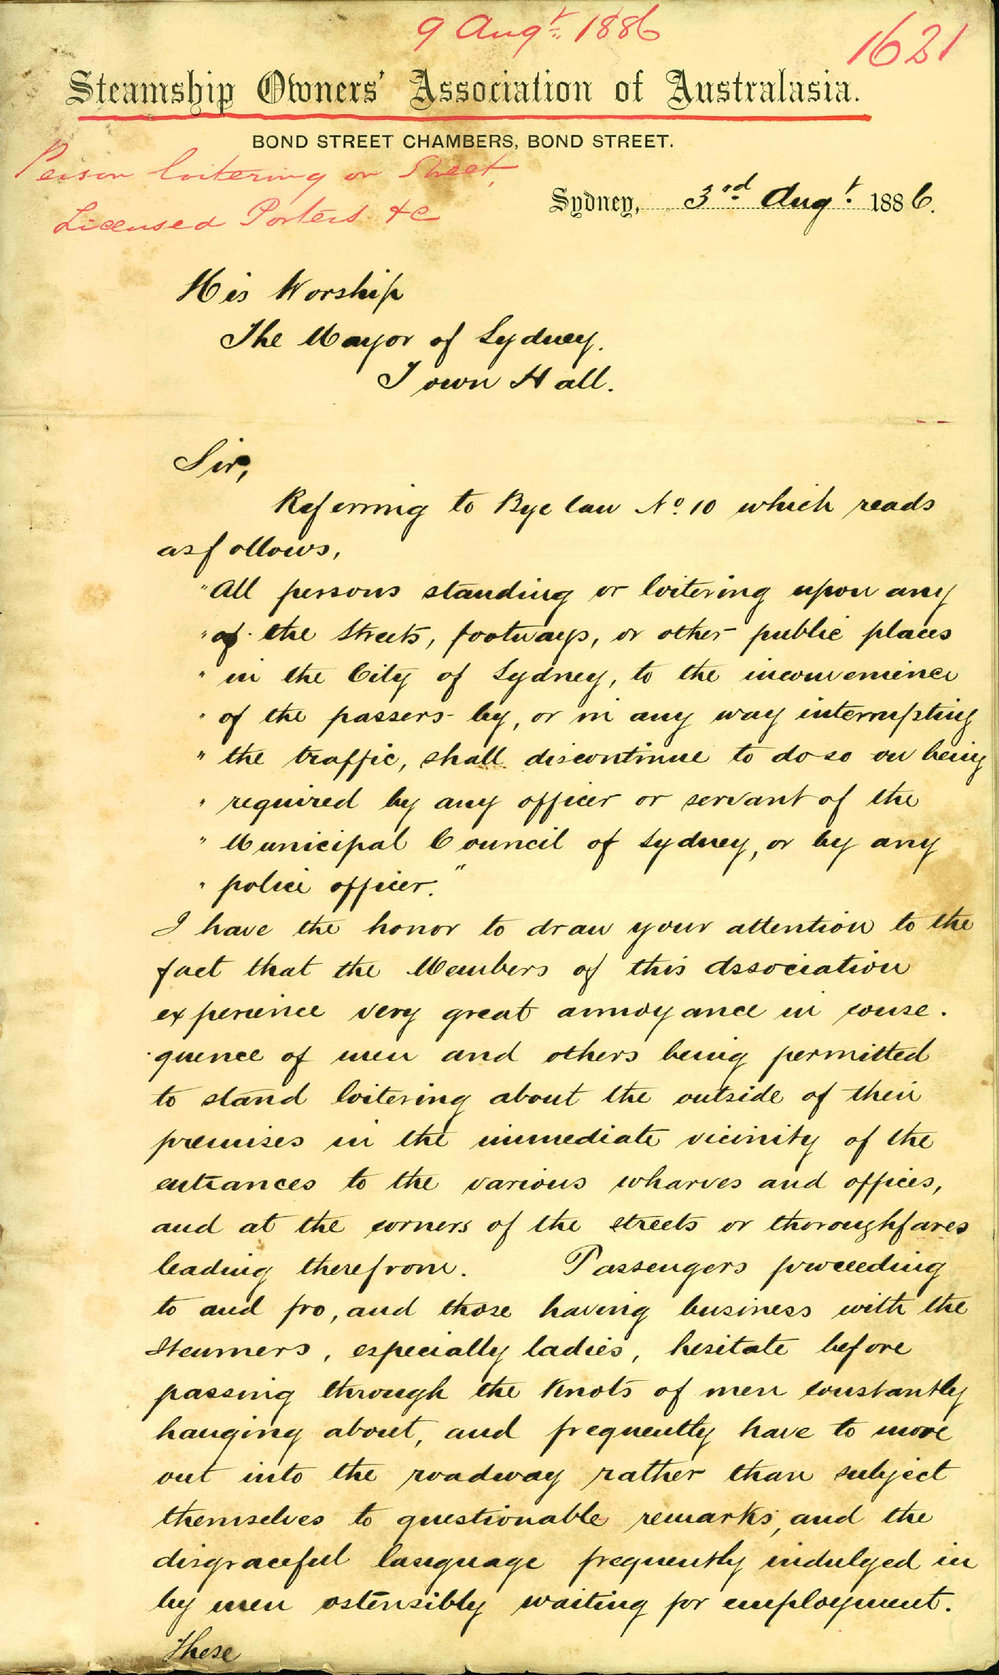 9 Augt. 1886
1621
Steamship Owners' Association of Australasia.
BOND STREET CHAMBERS, BOND STREET.
Person loitering on Street,
Licensed Porters &c
Sydney, 3rd Augt. 1886.
His Worship
The Mayor of Sydney.
Town Hall.
Sir,
Referring to Bye law No. 10 which reads
as follows,
"All persons standing or loitering upon any
" of the Streets, footways, or other public places
" in the City of Sydney, to the inconvenience
" of the passers-by, or in any way interrupting
" the traffic, shall discontinue to do so on being
" required by any officer or servant of the
" Municipal Council of Sydney, or by any
" police officer."
I have the honor to draw your attention to the
fact that the Members of this Association
experience very great annoyance in conse-
quence of men and others being permitted
to stand loitering about the outside of their
premises in the immediate vicinity of the
entrances to the various wharves and offices,
and at the corners of the streets or thoroughfares
leading therefrom. Passengers proceeding
to and fro, and those having business with the
Steamers, especially ladies, hesitate before
passing through the knots of men constantly
hanging about, and frequently have to move
out into the roadway rather than subject
themselves to questionable remarks, and the
disgraceful language frequently indulged in
by men ostensibly waiting for employment.
These